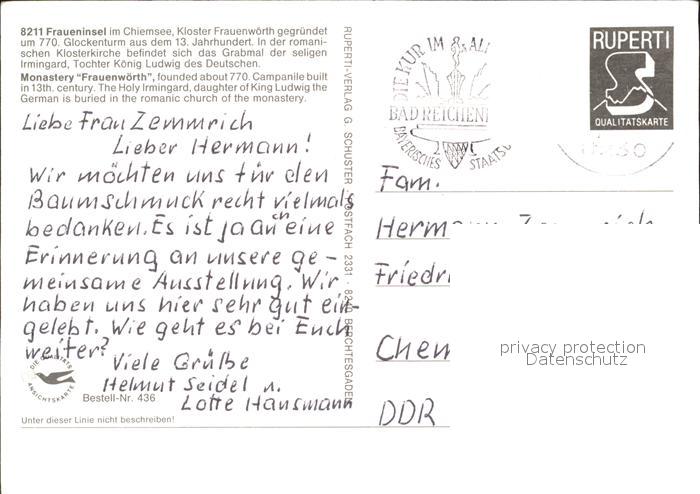 8211 Fraueninsel im Chiemsee, Kloster Frauenwörth gegründet
um 770. Glockenturm aus dem 13. Jahrhundert. In der romani-
schen Klosterkirche befindet sich das Grabmal der seligen
Irmingard, Tochter König Ludwig des Deutschen.
Monastery "Frauenwörth", founded about 770. Campanile built
in 13th. century. The Holy Irmingard, daughter of King Ludwig the
German is buried in the romanic church of the monastery.
Liebe Frau Zemmrich
Lieber Hermann!
Wir möchten uns für den
Baumschmuck recht vielmals
bedanken. Es ist ja auch eine
Erinnerung an unsere ge-
meinsame Ausstellung. Wir
haben uns hier sehr gut ein-
gelebt. Wie geht es bei Euch
weiter?
Viele Grüße
Helmut Seidel u.
Lotte Hansmann
DIE QUALITÄTS
ANSICHTSKARTE
Bestell-Nr. 436
Unter dieser Linie nicht beschreiben!
RUPERTI-VERLAG G. SCHUSTER POSTFACH 2331 · 8240 BERCHTESGADEN
DIE KUR IM
BAD REICHEN
BAYERISCHES STAATS
RUPERTI
QUALITÄTSKARTE
Fam.
Hermann Zemmrich
Friedri
Chem
DDR
privacy protection
Datenschutz